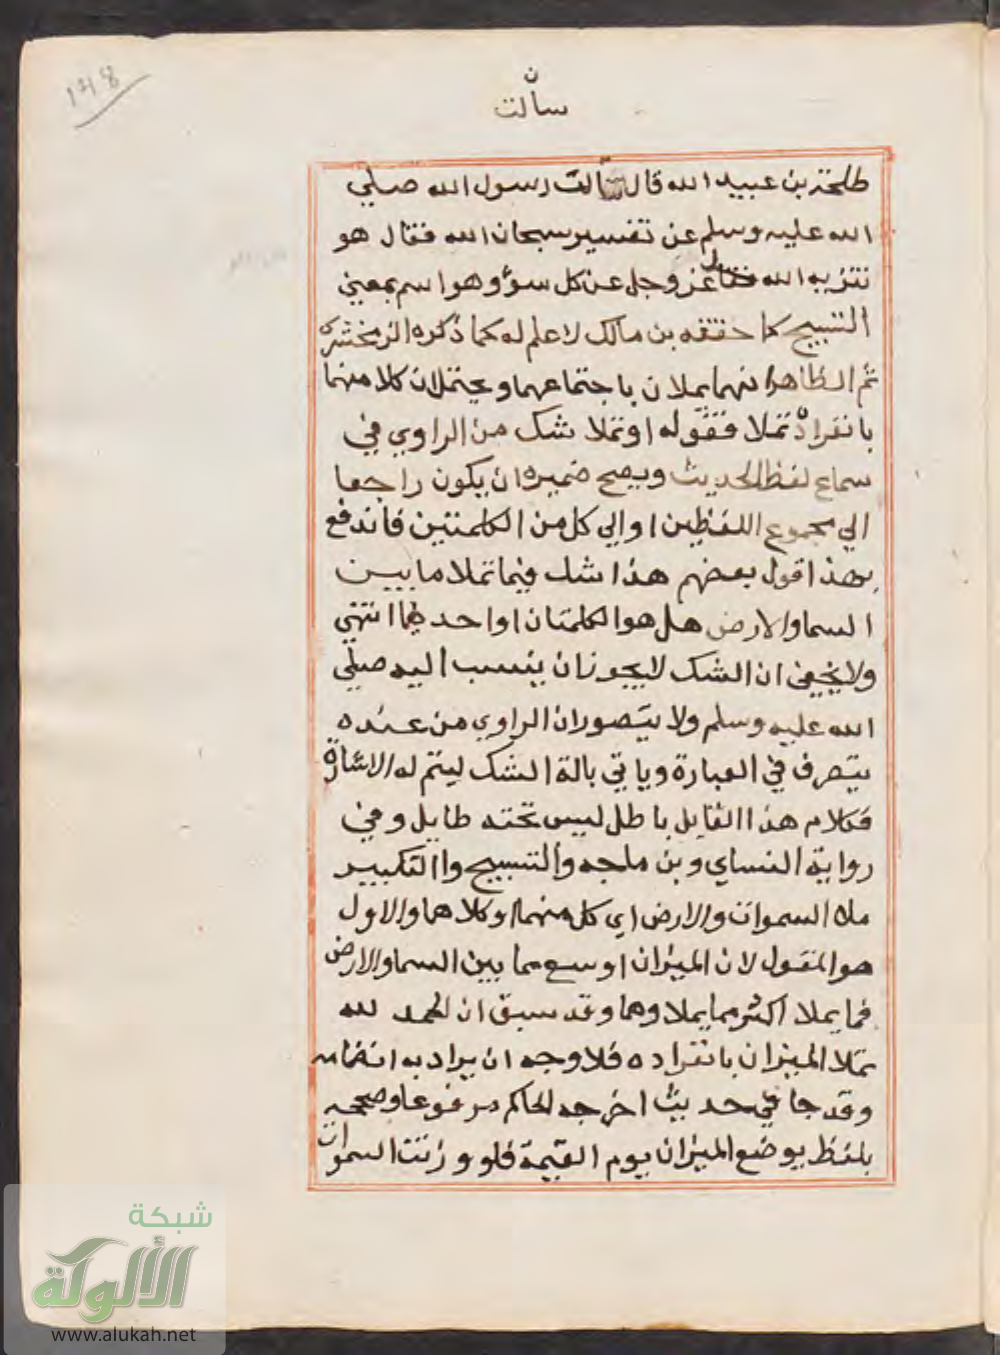 ١٣٨
ن
سالت
طلحة بن عبيد الله قال سالت رسول الله صلي
الله عليه وسلم عن تفسير سبحان الله فقال هو
تنزيه الله عز وجل عن كل سوؤ وهو اسم بمعني
التسبيح كما حققه بن مالك لا علم له كما ذكره الزمخشري
ثم الظاهر انهما يملان باجتماعهما ويحتمل ان كلا منهما
بانفراده تملا فقوله او تملا شك من الراوي في
سماع لفظ الحديث ويصح ضميره ان يكون راجعا
الي مجموع اللفظين او الي كل من الكلمتين فاندفع
بهذا قول بعضهم هذا شك فيما تملا ما بيـن
السما والارض هل هو الكلمتان او احدهما انتهي
ولا يخفي ان الشك لا يجوز ان ينسب اليه صلي
الله عليه وسلم ولا يتصور ان الراوي من عنده
يتصرف في العبارة وياتي بالة الشك ليتم له الاشارة
فكلام هذا القايل باطل ليس تحته طايل وفي
رواية النساي وبن ماجه والتسبيح واالتكبير
ملا السموات والارض اي كل منهما او كلاهما والاول
هو المنقول لان الميزان اوسع مما بين السما والارض
فما يملا اكثر مما يملاوهما وقد سبق ان الحمد لله
تملا الميزان بانفراده فلا وجه ان يراد به انضمامه
وقد جا في حديث اخرجه الحاكم مرفوعا وصححه
بلفظ يوضع الميزان يوم القيمة فلو وزنت السموات
شبكة
الألوكة
www.alukah.net